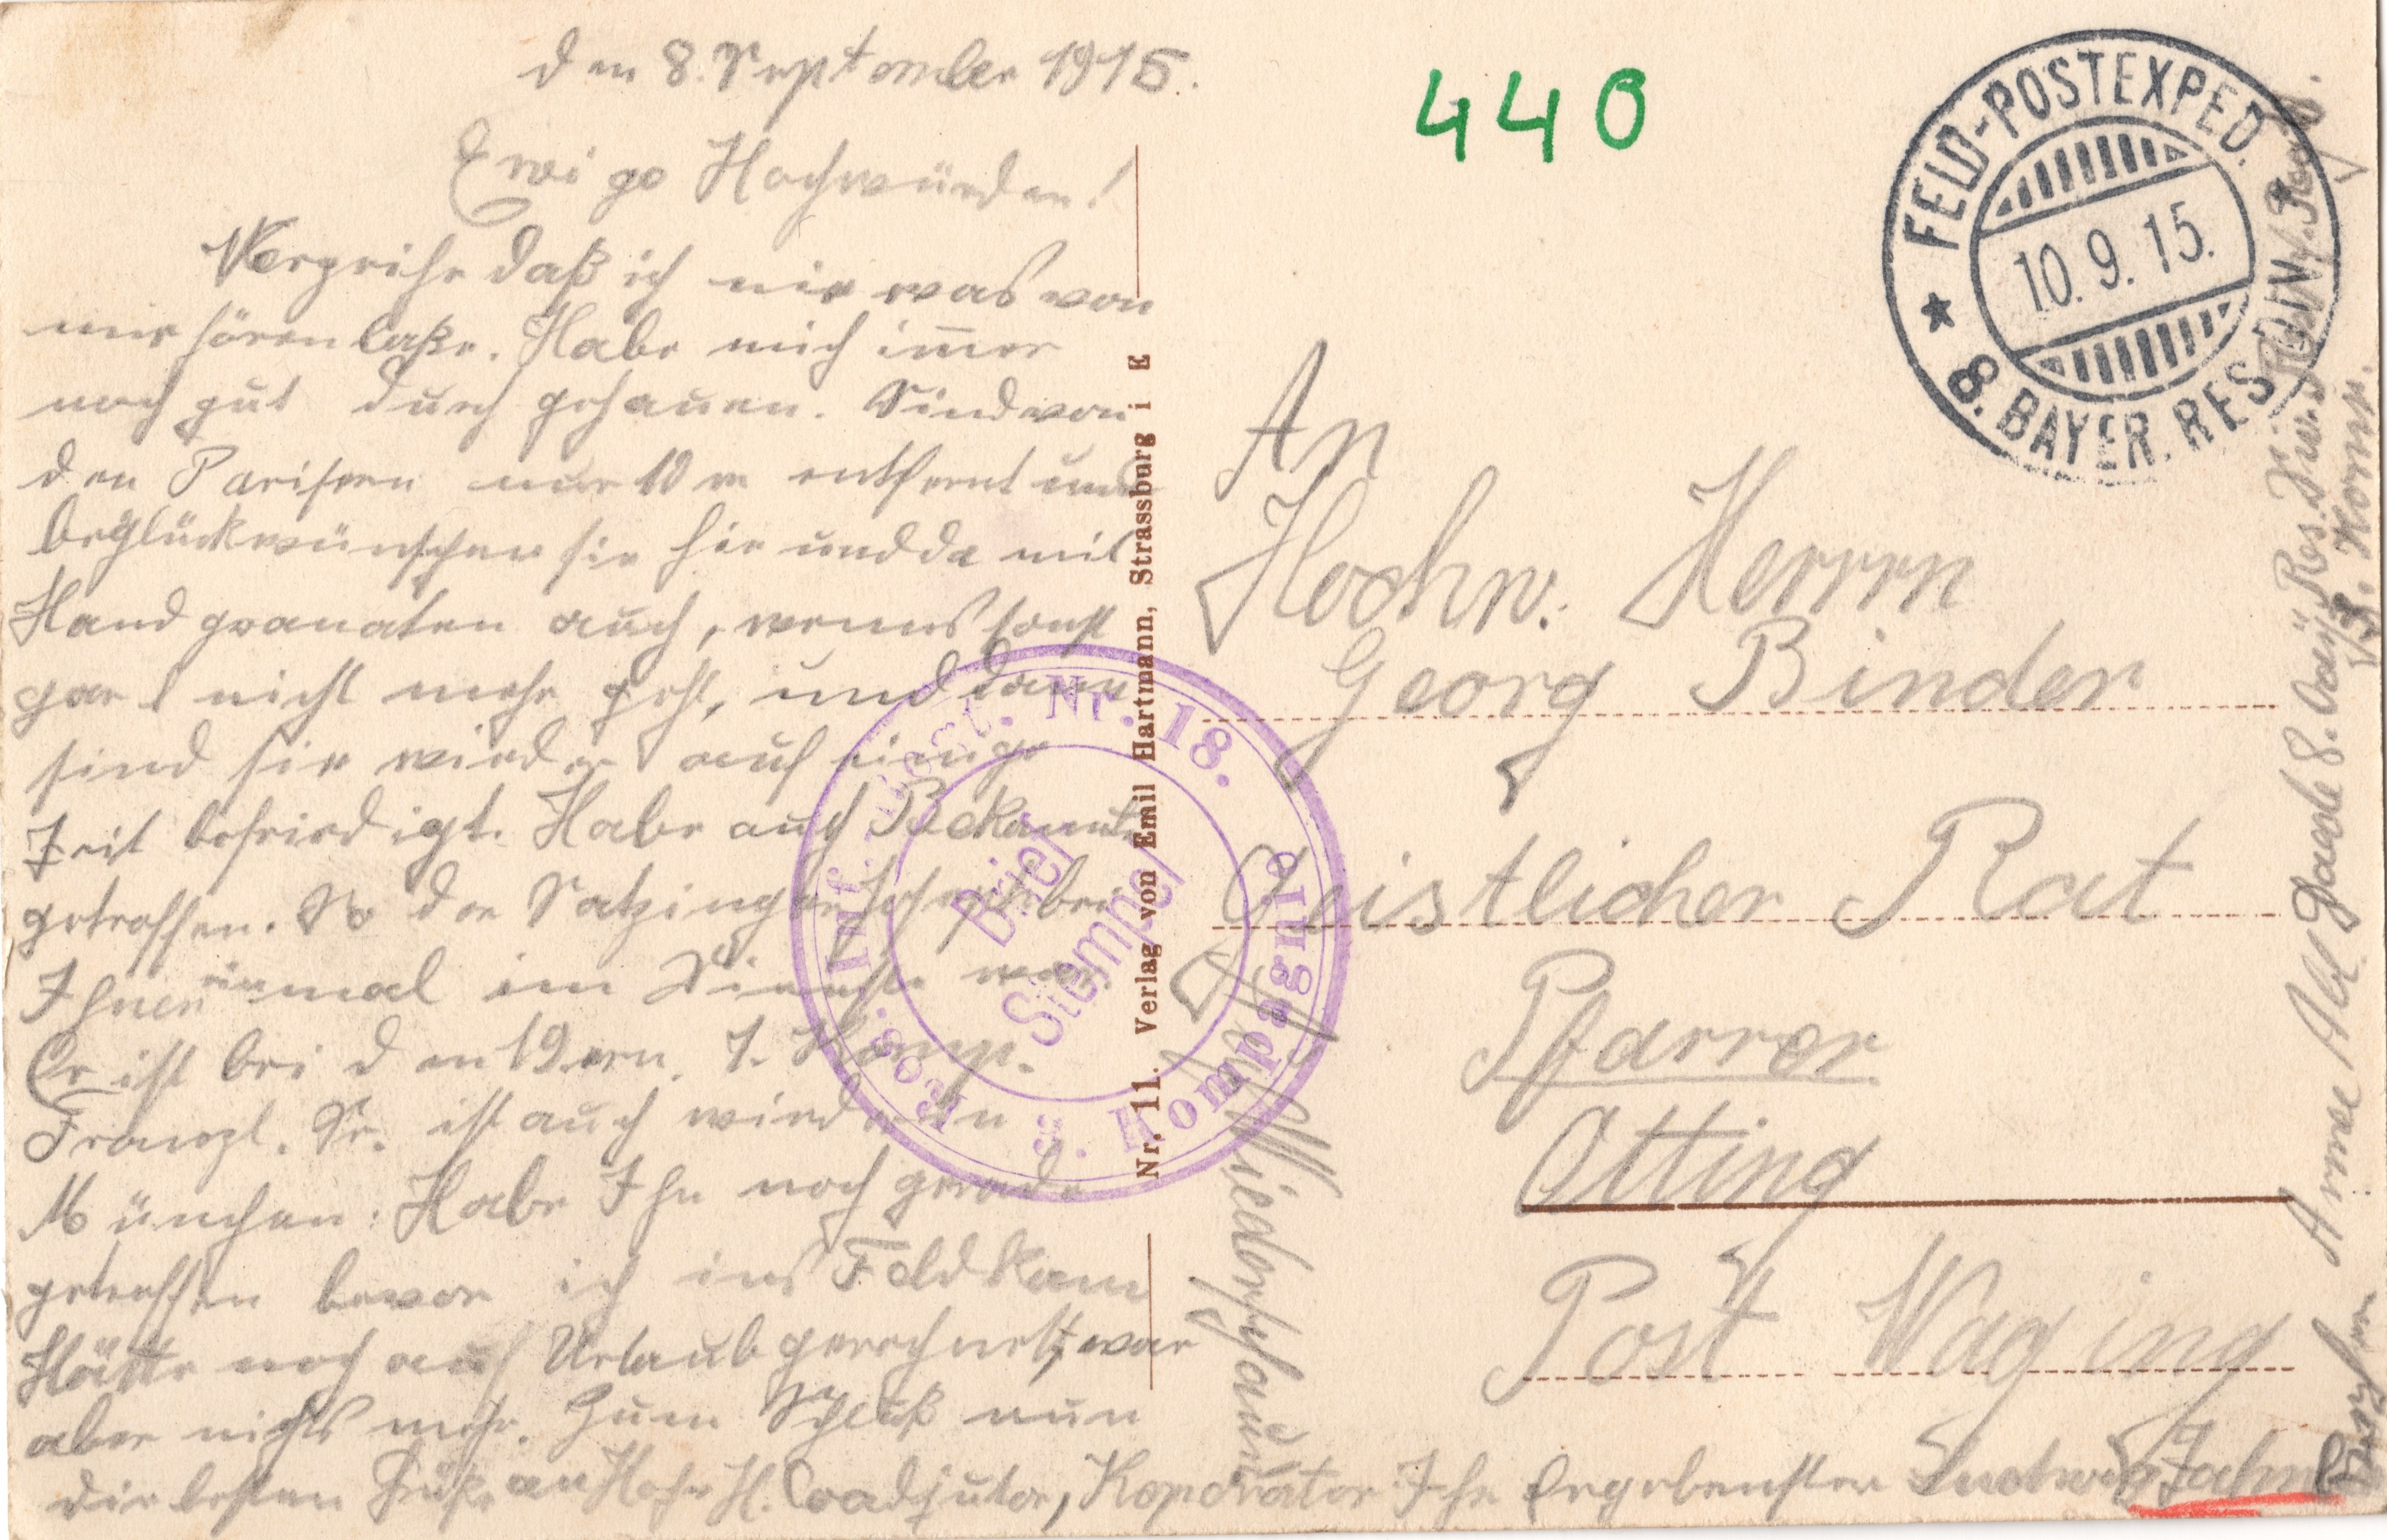 den 8. September 1915.
Ewige Hochwürden!
Verzeihe daß ich nie was von
mir hören laße. Habe mich im̄er
noch gut durch gehauen. Sind von
den Parisern nur 10 m entfernt und
beglückwünschen sie hie und da mit
Handgranaten auch, wenns sonst
gar nicht mehr geht, und dann
sind sie wieder auf einige
Zeit befriedigt. Habe auch Bekannte
getroffen. So der Satzinger
Ihnen einmal im Dienste war.
Er ist bei den 19ern. 7. Komp.
Franzl. Sr. ist auch wieder in
München. Habe Ihn noch gerade
getroffen bevor ich ins Feld kam
Hätte noch auf Urlaub gerechnet, war
aber nichts mehr. Zum Schluß nun
die besten Grüße an Hochw. H. Coadjutor, Koperator Ihr Ergebenster Ludwig Jahn
Auf Wiederschaun
Nr. 11. Verlag von Emil Hartmann, Strassburg i E
Res. Inf. Regt. Nr. 18.
8. Kompagnie
Brief
Stempel
440
FELD-POSTEXPED.
10.9.15.
8. BAYER. RES. DIV.
An
Hochw. Herrn
Georg Binder
Geistlicher Rat
Pfarrer
Otting
Post Waging
Armee Abt Gaede 8. bay Res. Div. Res. Inf. Regt.
8. Komp.